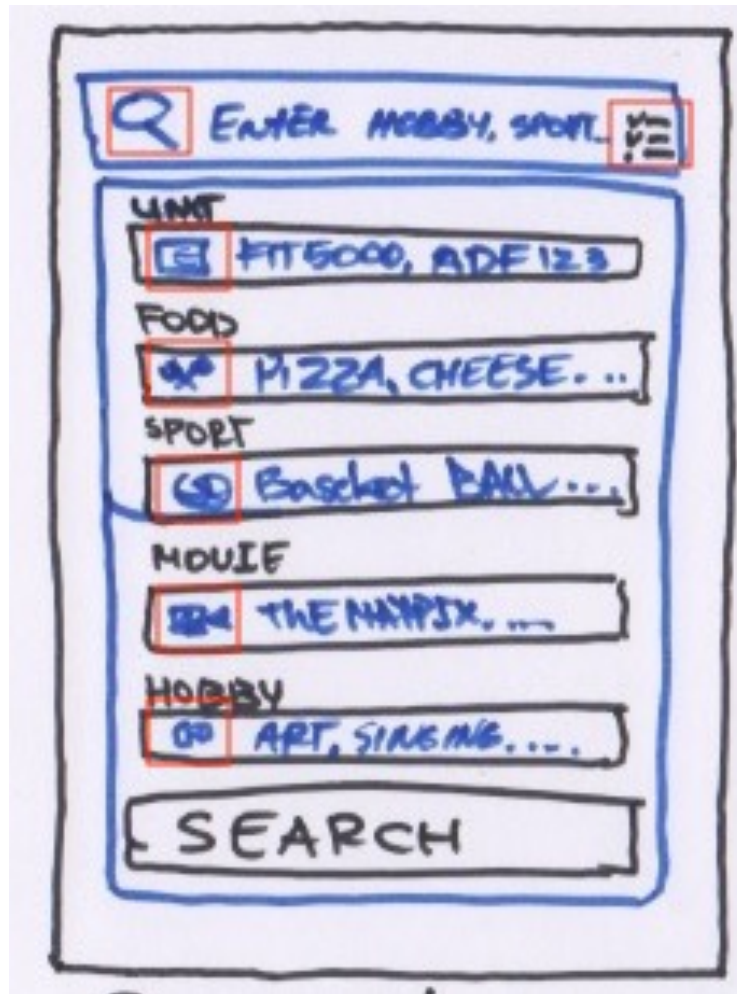 ENTER HOBBY, SPORT...
UNIT
FIT5000, ADF123
FOOD
PIZZA, CHEESE...
SPORT
Bascket BALL...
MOVIE
THE MATRIX....
HOBBY
ART, SINGING.....
SEARCH